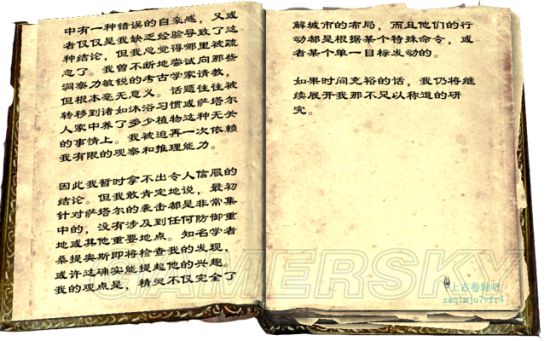 中有一种错误的自豪感，又或
者仅仅是我缺乏经验导致了这
种结论，但我总觉得哪里被疏
忽了。我曾不断地尝试向那些
洞察力敏锐的考古学家请教，
但根本毫无意义。话题往往被
转移到诸如沐浴习惯或萨塔尔
人家中养了多少植物这种无关
的事情上。我被迫再一次依赖
我有限的观察和推理能力。
因此我暂时拿不出令人信服的
结论。但我敢肯定地说，最初
针对萨塔尔的袭击都是非常集
中的，没有涉及到任何防御重
地或其他重要地点。知名学者
桑提奥斯即将检查我的发现，
或许这确实能提起他的兴趣。
我的观点是，精灵不仅完全了
解城市的布局，而且他们的行
动都是根据某个特殊命令，或
者某个单一目标发动的。
如果时间充裕的话，我仍将继
续展开我那不足以称道的研
究。
GAMERSKY
上古卷轴吧
zaq1mju7vfr4